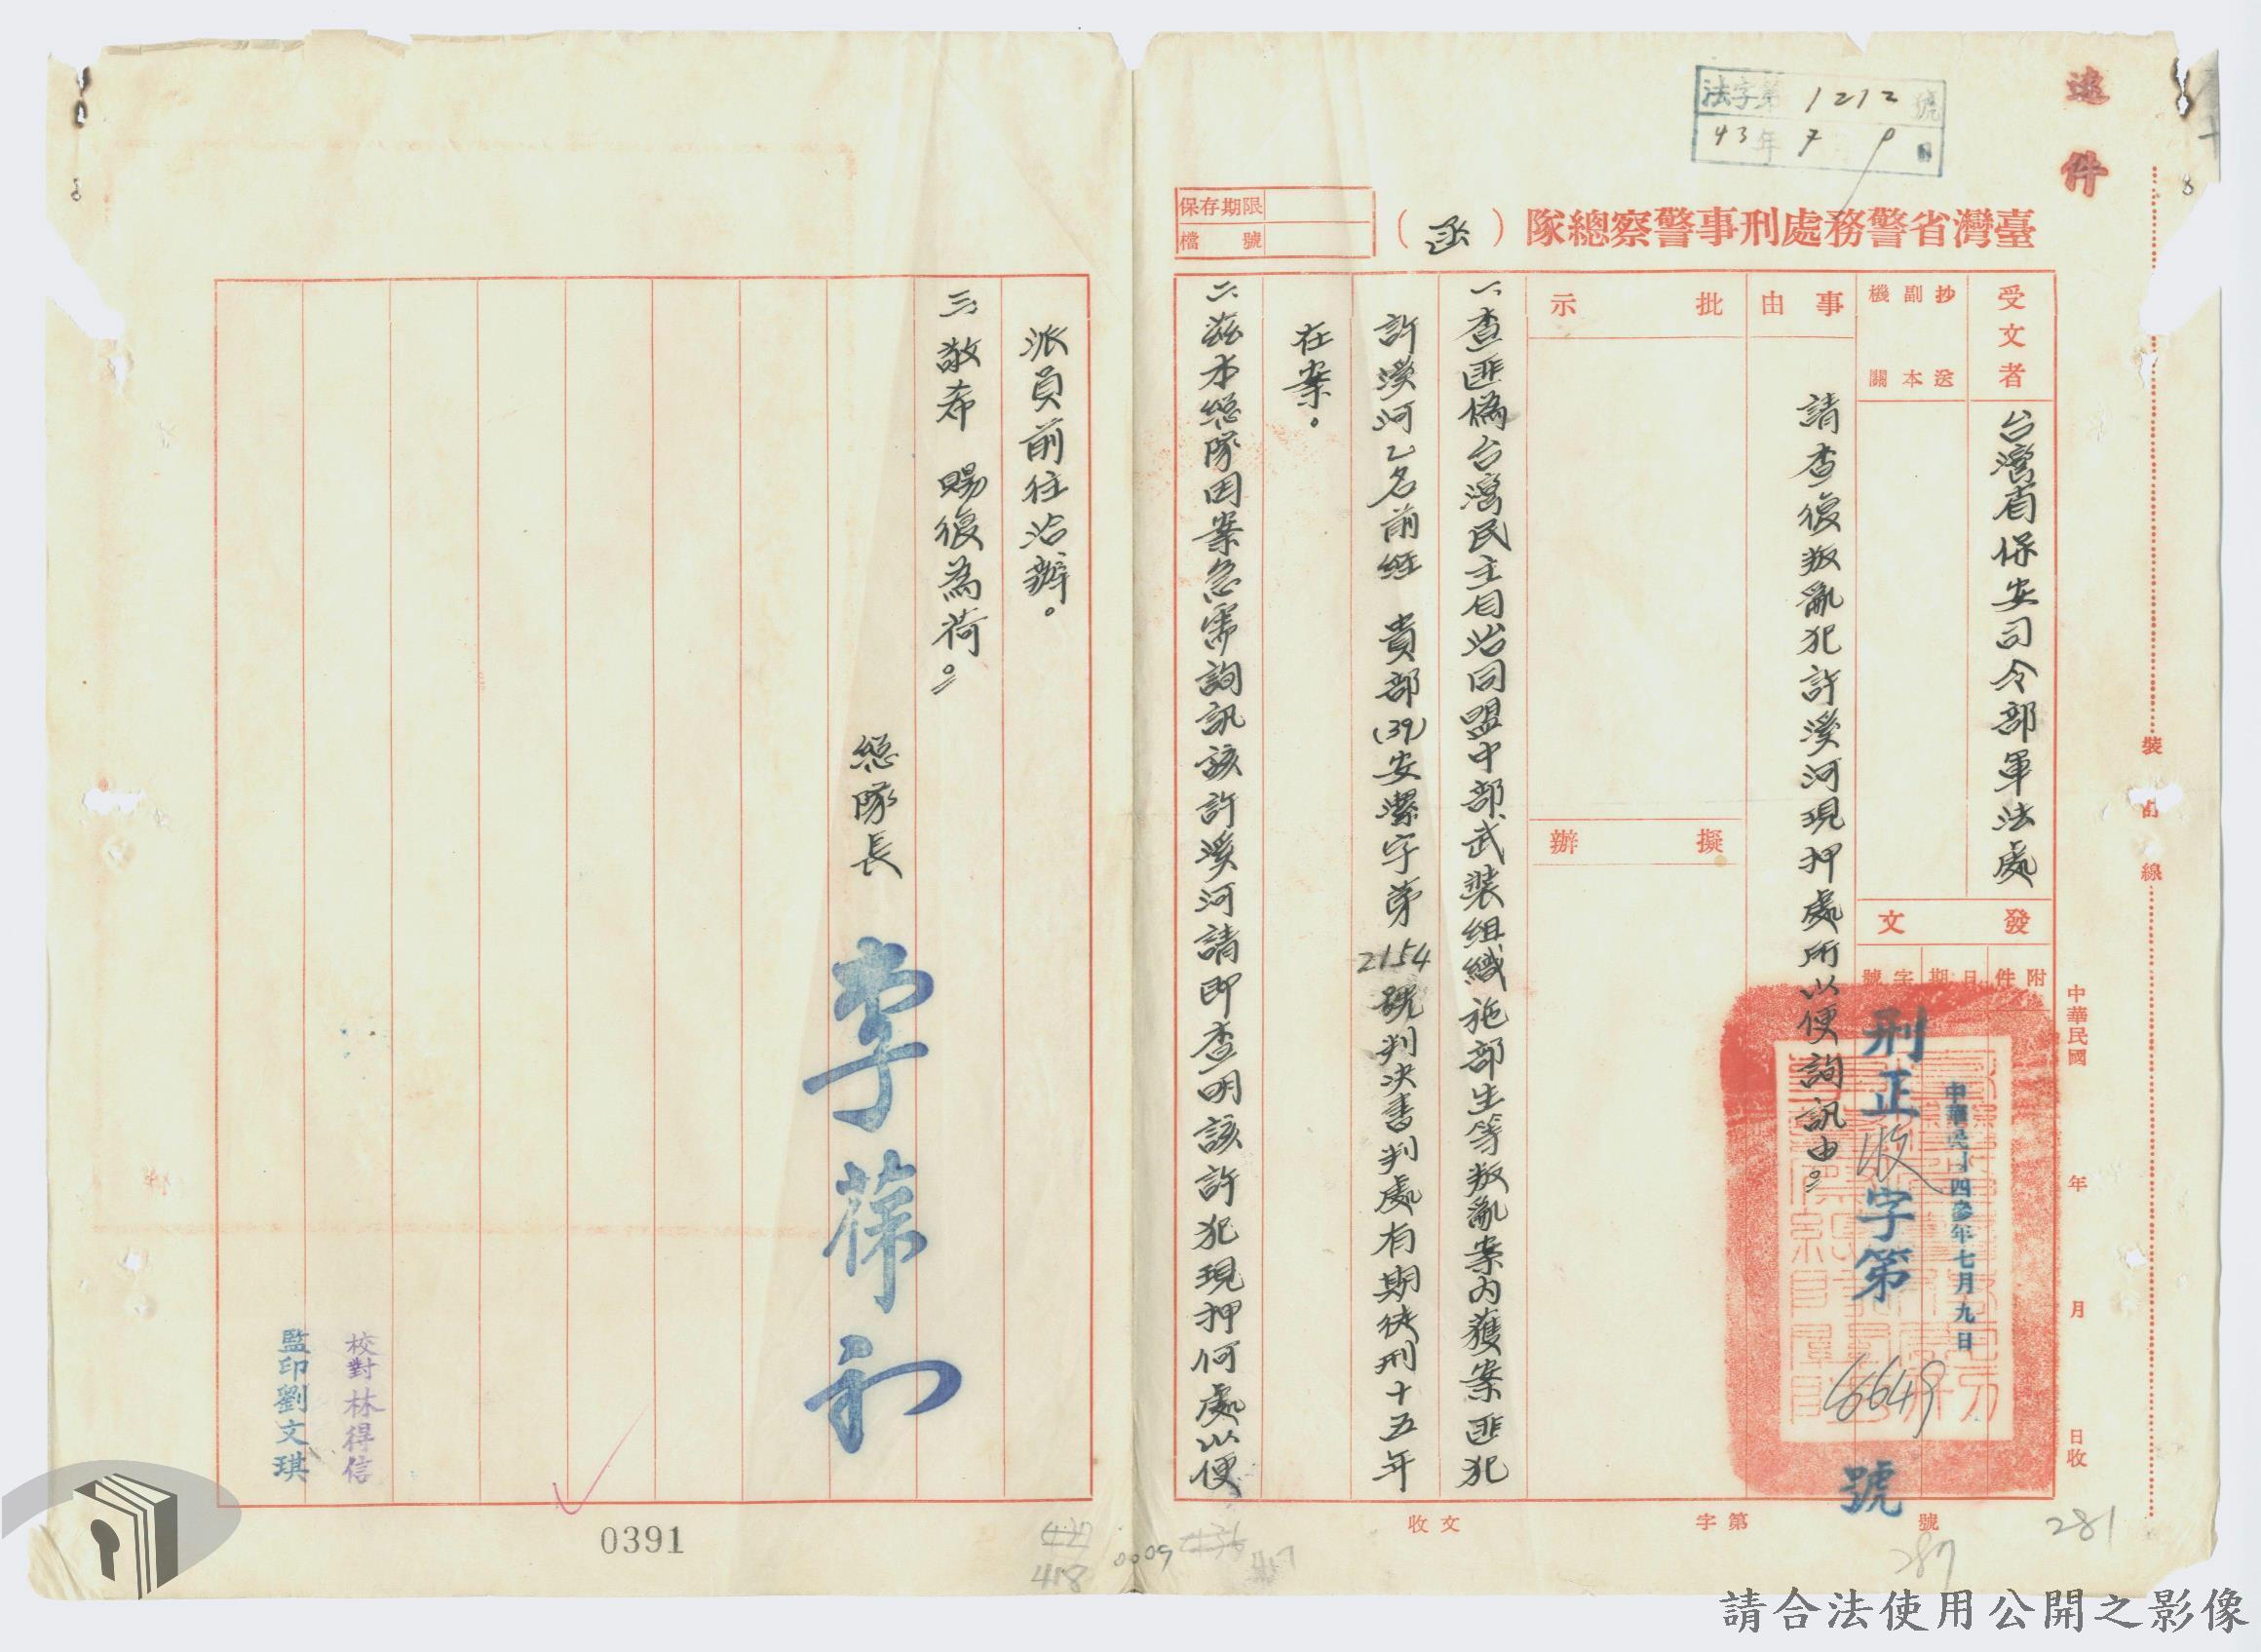 速件
法字第1212號
43年7月9日
臺灣省警務處刑事警察總隊（函）
保存期限
檔號
受文者
台灣省保安司令部軍法處
抄送副本機關
發文
附件
日期
字號
中華民國四參年七月九日
刑正收字第6649號
事由
請查復叛亂犯許溪河現押處所以便詢訊由。
批示
擬辦
一、查匪偽台灣民主自治同盟中部武裝組織施部生等叛亂案內獲案匪犯
許溪河乙名前經 貴部(39)安潔字第2154號判決書判處有期徒刑十五年
在案。
二、茲本總隊因案急需詢訊該許溪河請即查明該許犯現押何處以便
派員前往洽辦。
三、敬希 賜復為荷。
總隊長 李葆初
校對林得信
監印劉文琪
中華民國 年 月 日收
裝訂線
收文 字第 號
281
287
0391
418
0005
請合法使用公開之影像